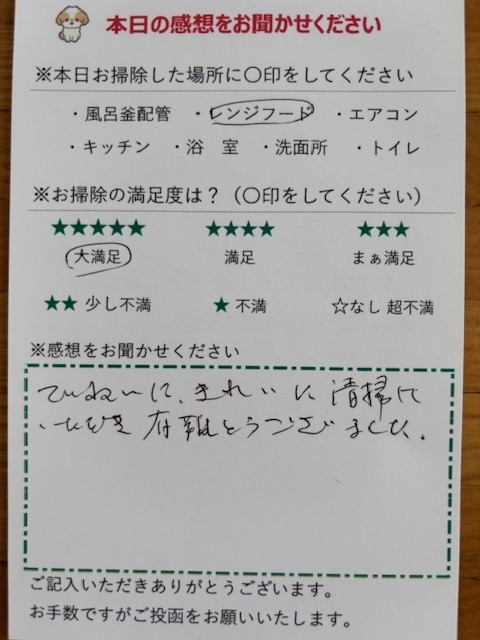 本日の感想をお聞かせください
※本日お掃除した場所に〇印をしてください
・風呂釜配管 ・レンジフード ・エアコン
・キッチン ・浴 室 ・洗面所 ・トイレ
※お掃除の満足度は？（〇印をしてください）
★★★★★ ★★★★ ★★★
大満足 満足 まぁ満足
★★ 少し不満 ★ 不満 ☆なし 超不満
※感想をお聞かせください
ていねいに、きれいに清掃して
いただき有難とうございました。
ご記入いただきありがとうございます。
お手数ですがご投函をお願いいたします。